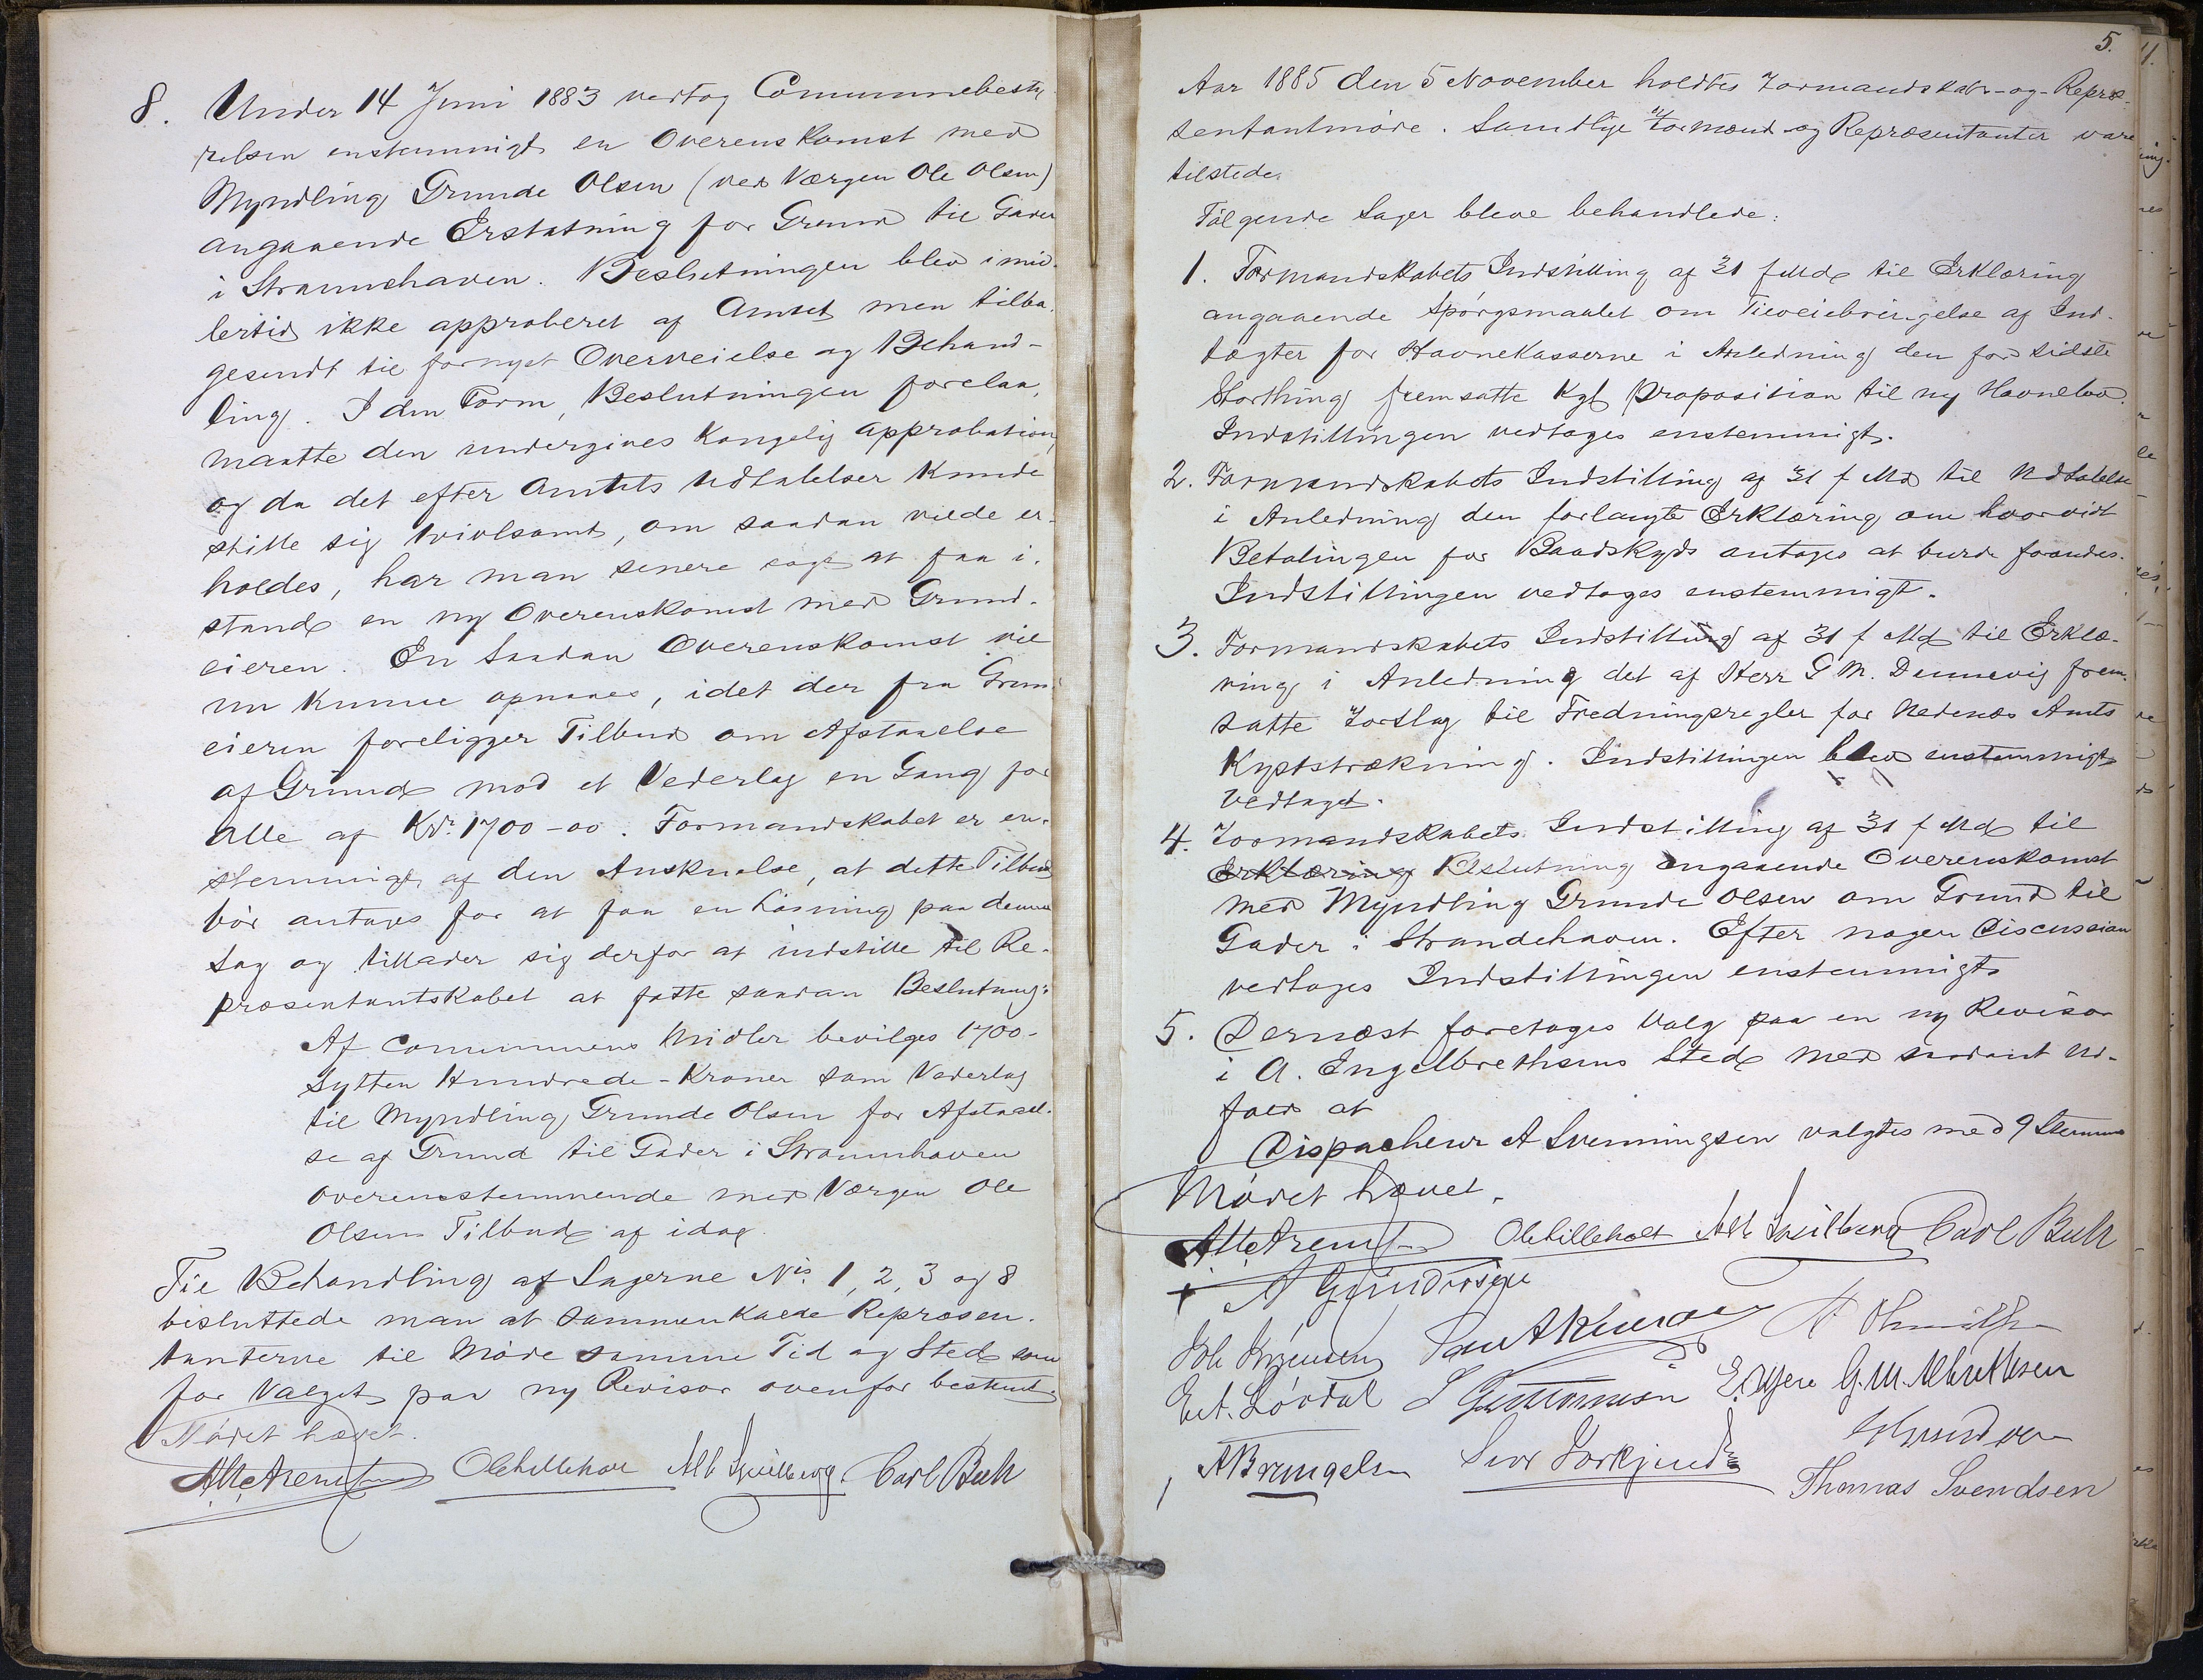 8. Under 14 Juni 1883 vedtog Communebesty
relsen enstemmigt en Overenskomst med
Myndling Grunde Olsen (ved Værgen Ole Olsen)
angaaende Erstatning for Grund til Gader
i Strannehaven. Beslutningen blev imid-
lertid ikke approberet af Amtet men tilba-
gesendt til fornyet Overveielse og Behand-
ling. I den Form, Beslutningen forelaa,
maatte den undergives Kongelig Approbation,
og da det efter Amtets Udtalelser Kunde
stille sig tvivlsomt, om saadan vilde er-
holdes, har man senere søgt at faa i-
stand en ny Overenskomst med Grund-
eieren. En saadan Overenskomst vil
nu Kunne opnaaes, idet der fra Grund-
eieren foreligger Tilbud om Afstaaelse
af Grund mod et Vederlag en Gang for
Alle af Kr. 1700-00. Formandskabet er en-
stemmigt af den Anskuelse, at dette Tilbud
bör antages for at faa en Løsning paa denne
Sag og tillader sig derfor at indstille til Re-
præsentantskabet at fatte saadan Beslutning:
Af Communens Midler bevilges 1700-
Sytten Hundrede-Kroner som Vederlag
til Myndling Grunde Olsen for Afstaael-
se af Grund til Gader i Strannehaven
overensstemmende med Værgen Ole
Olsens Tilbud af idag.
Til Behandling af Sagerne No. 1, 2, 3 og 8
besluttede man at sammenkalde Repræsen-
tanterne til Møde samme Tid og Sted som
for Valget paa ny Revisor ovenfor bestemt.
Mödet hævet.
Ole Lilleholt Alb Carl Buch
5.
Aar 1885 den 5 November holdtes Formandskabs- og Repræ-
sentantmöde. Samtlige Formænd og Repræsentanter vare
tilstede.
Fölgende Sager bleve behandlede:
1. Formandskabets Indstilling af 31 f Md til Erklæring
angaaende Spörgsmaalet om Tilveiebringelse af Ind-
tægter for Havnekasserne i Anledning den for sidste
Storthing fremsatte Kgl Proposition til ny Havnelov.
Indstillingen vedtoges enstemmigt.
2. Formandskabets Indstilling af 31 f Md til Udtalelse
i Anledning den forlangte Erklæring om hvorvidt
Betalingen for Baadskyds antages at burde forandres.
Indstillingen vedtoges enstemmigt.
3. Formandskabets Indstilling af 31 f Md til Erklæ-
ring i Anledning det af Herr G M. Dannevig frem-
satte Forslag til Fredningsregler for Nedenæs Amts
Kyststrækning. Indstillingen blev enstemmigt
vedtaget.
4. Formandskabets Indstilling af 31 f Md til
Erklæring Beslutning angaaende Overenskomst
med Myndling Grunde Olsen om Grund til
Gader i Strandehaven. Efter nogen Discussion
vedtoges Indstillingen enstemmigt.
5. Dernæst foretoges Valg paa en ny Revisor
i A. Engelbrethsens Sted med saadant Ud-
fald at
Dispacheur A Svenningsen valgtes med 9 Stemmer
Mödet hævet.
Ole Lilleholt Alb Carl Buch
A Gundersen
Joh Jörgensen
S Guttormsen G. M. Albrethsen
A Bryngelsen
Thomas Svendsen